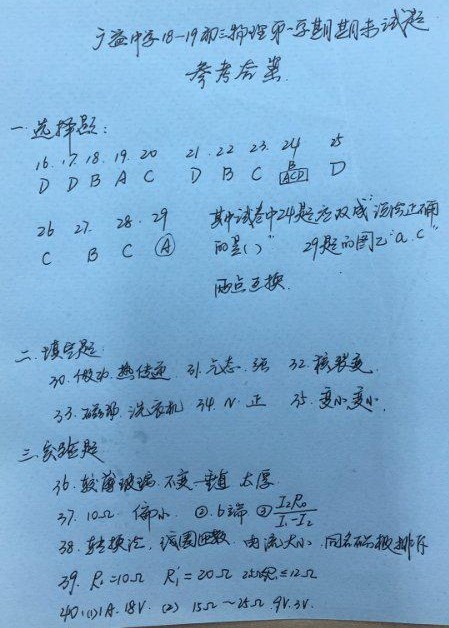 广益中学18-19初三物理第一学期期末试题
参考答案
一.选择题:
16. 17. 18. 19. 20 21. 22 23. 24 25
D D B A C D B C B ACD D
26 27. 28. 29 其中试卷中24题应改成"说法正确
C B C A 的是()" 29题的图乙"a.c"
两点互换.
二.填空题
30.做功.热传递 31.气态. 强 32.核裂变
33. 洗衣机 34. N. 正 35.变小,变小.
三.实验题
36.较薄玻璃 不变 太厚
37. 10Ω 偏小 ②.b端 ③ I₂R₀/I₁-I₂
38.转换法,线圈匝数 电流大小.同名磁极排斥
39. R₁=10Ω R₁'=20Ω ≤12Ω
40.(1)1A.18V. (2) 15Ω~25Ω 9V.3V.